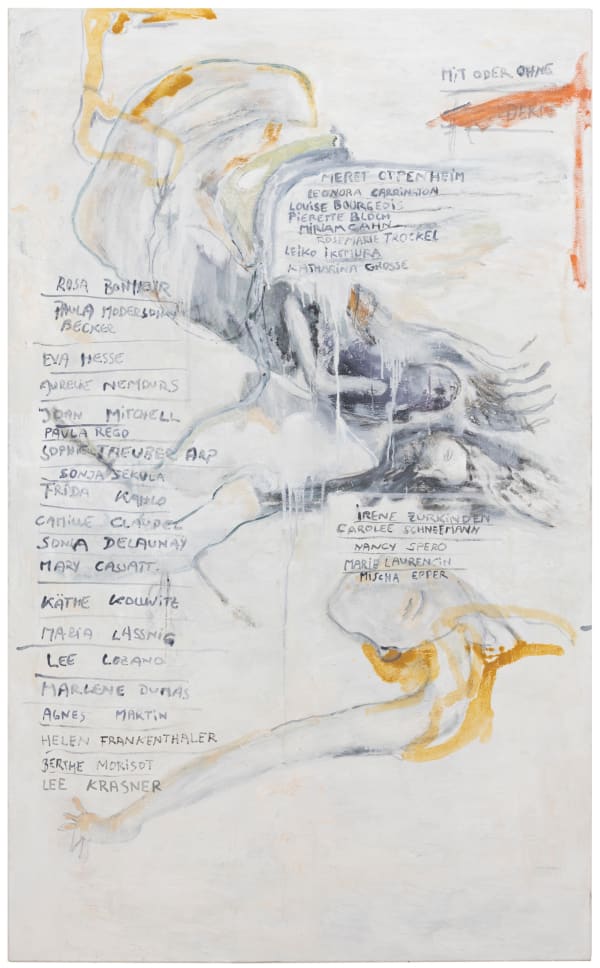 MIT ODER OHNE
MERET OPPENHEIM
LEONORA CARRINGTON
LOUISE BOURGEOIS
PIERETTE BLOCH
MIRIAM CAHN
ROSEMARIE TROCKEL
LEIKO IKEMURA
KATHARINA GROSSE
ROSA BONHEUR
PAULA MODERSOHN
BECKER
EVA HESSE
AURELIE NEMOURS
JOAN MITCHELL
PAULA REGO
SOPHIE TAEUBER ARP
SONJA SEKULA
FRIDA KAHLO
CAMILLE CLAUDEL
SONIA DELAUNAY
MARY CASSATT.
KÄTHE KOLLWITZ
MARIA LASSNIG
LEE LOZANO
MARLENE DUMAS
AGNES MARTIN
HELEN FRANKENTHALER
BERTHE MORISOT
LEE KRASNER
IRENE ZURKINDEN
CAROLEE SCHNEEMANN
NANCY SPERO
MARIE LAURENCIN
MISCHA EPPER